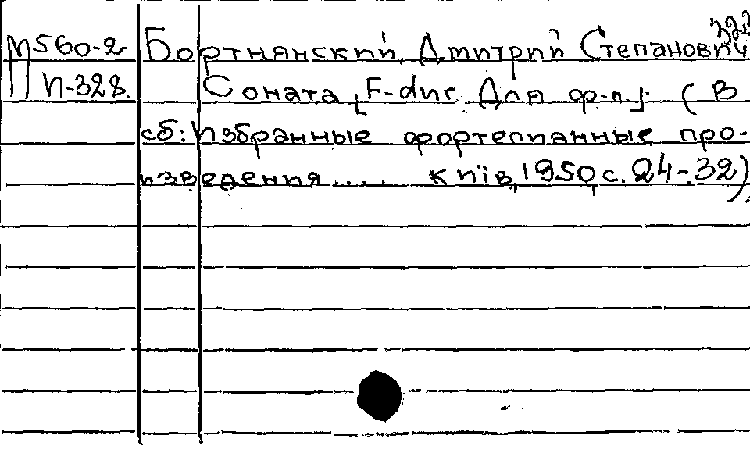 М560-2 Бортнянский, Дмитрий Степанович
И-328. Соната [F-dur. Для ф-п]. (В
сб: Избранные фортепианные про-
изведения.... Київ, 1950, с. 24-32).